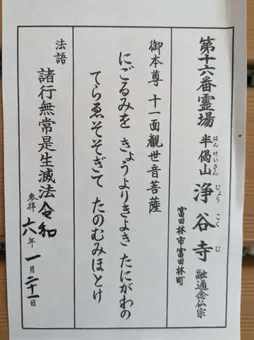 第十六番霊場
半偈山
はんげいさん
浄谷寺
じょうこくじ
融通念仏宗
富田林市富田林町
御本尊 十一面観世音菩薩
にごるみを きょうよりきよき たにがわの
てらゑそそぎて たのむみほとけ
法語
諸行無常是生滅法
参拝
令和六年一月二十一日